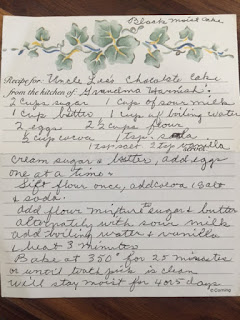 Black Moist Cake
Recipe for Uncle Les's Chocolate Cake
from the kitchen of Grandma Warnish:
2 cups sugar 1 cup of sour milk
1 cup butter 1 cup of boiling water
2 eggs 2 1/2 cups flour
1/2 cup cocoa 1 tsp. soda
1 tsp salt 2 tsp vanilla
Cream sugar & butter, add eggs
one at a time.
Sift flour once, add cocoa, salt
& soda.
add flour mixture to sugar & butter
alternately with sour milk
add boiling water & vanilla
beat 3 minutes
Bake at 350° for 25 minutes
or until tooth pick is clean
will stay moist for 4 or 5 days
© Current